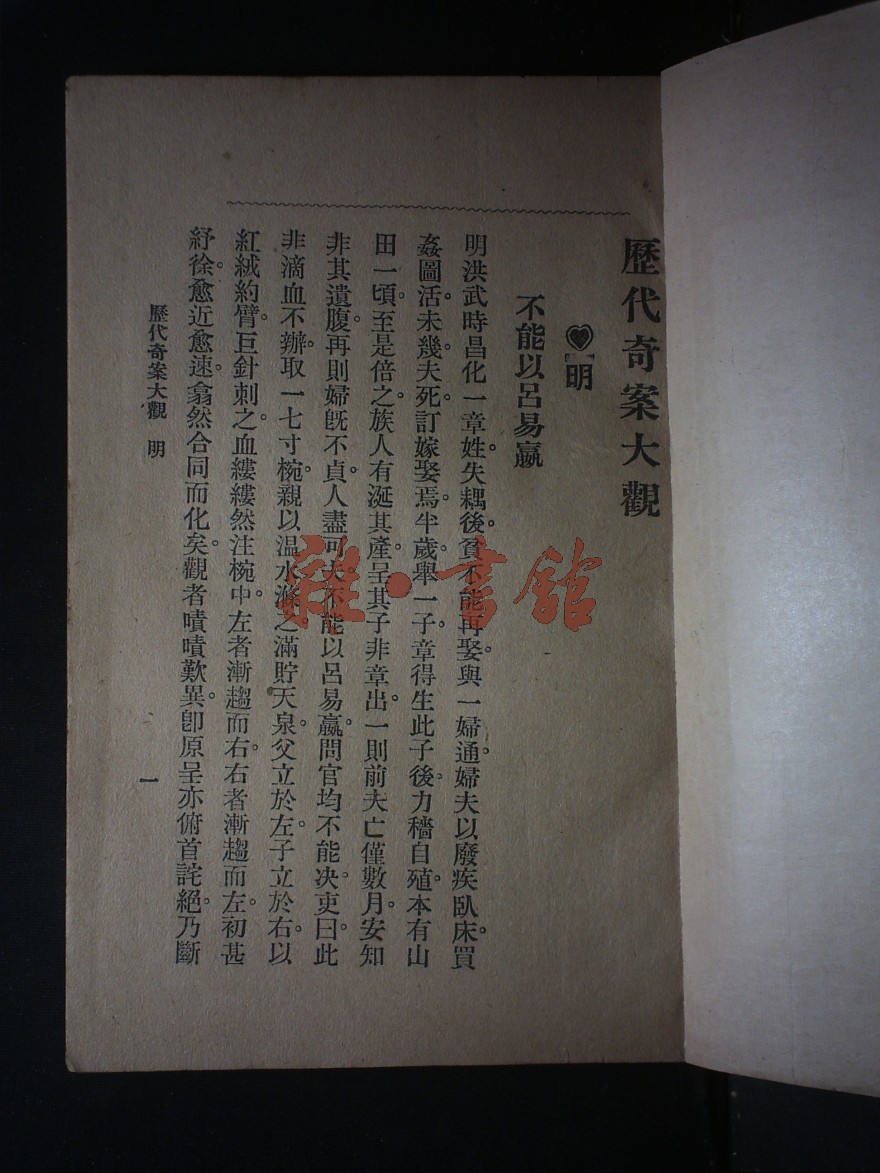 歷代奇案大觀
明
不能以呂易嬴
明洪武時昌化一章姓失耦後。貧不能再娶。與一婦通。婦夫以廢疾臥床。買
姦圖活。未幾夫死。訂嫁娶焉。半歲。舉一子。章得生此子後。力穡自殖。本有山
田一頃。至是倍之。族人有涎其產。呈其子非章出。一則前夫亡僅數月。安知
非其遺腹。再則婦旣不貞。人盡可夫。不能以呂易嬴。問官均不能决。吏曰。此
非滴血不辦。取一七寸椀。親以温水滌之。滿貯天泉。父立於左。子立於右。以
紅絨約臂。巨針刺之。血縷縷然注椀中。左者漸趨而右。右者漸趨而左。初甚
紓徐。愈近愈速。翕然合同而化矣。觀者嘖嘖歎異。卽原呈亦俯首詫絕。乃斷
歷代奇案大觀 明
一
雜·書館